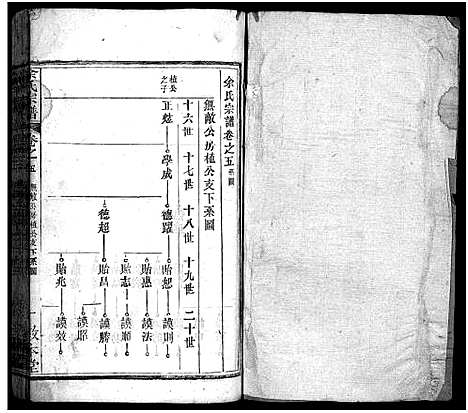 余氏宗譜卷之五系圖
無敵公房植公支下系圖
十六世 十七世 十八世 十九世 二十世
植公之子
正炫 學成 德躍 貽恕 謨則
貽惠 謨法
貽志 謨順
德超 貽昌 謨勝
謨昭
貽兆 謨效
余氏宗譜 卷之五 無敵公房植公支下系圖 一 敦本堂